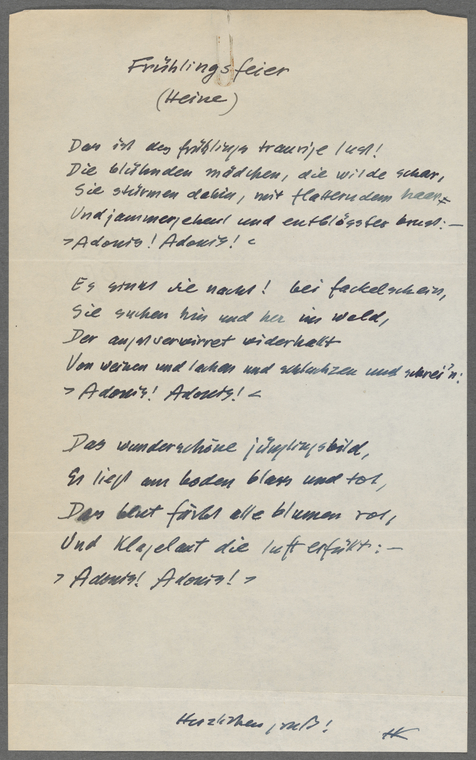 Frühlingsfeier
(Heine)
Das ist des frühlings traurige lust!
Die blühnden mädchen, die wilde schar,
Sie stürmen dahin, mit flatterndem haar
Und jammergeheul und entblösster brust: —
>Adonis! Adonis! <
Es sinkt die nacht! bei fackelschein,
Sie suchen hin und her im wald,
Der angstverwirret widerhallt
Von weinen und lachen und schluchzen und schrei'n:
> Adonis! Adonis! <
Das wunderschöne jünglingsbild,
Es liegt am boden blass und tot,
Das blut färbt alle blumen rot,
Und klagelaut die luft erfüllt: —
> Adonis! Adonis! >
Herzlichen gruß!
HK